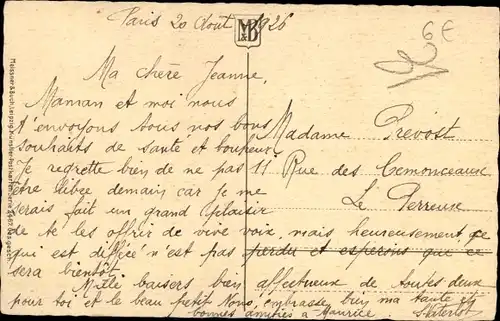 Paris 20 Août 1926
M&B
6€
Ma chère Jeanne,
Maman et moi nous
t'envoyons tous nos bons
souhaits de santé et bonheur.
Je regrette bien de ne pas
être libée demain car je me
serais fait un grand plaisir
de te les offrir de vive voix, mais heureusement, ce
qui est différé n'est pas perdu et espérons que ce
sera bientôt.
Mille baisers bien affectueux de toutes deux
pour toi et le beau petit Nono, embrasse bien ma tante
bonnes amitiés à Maurice
Madame Prevost
11 Rue des Clemonceaux
Le Perreux
Meissner & Buch, Leipzig, Künstler-Postkarten Serie